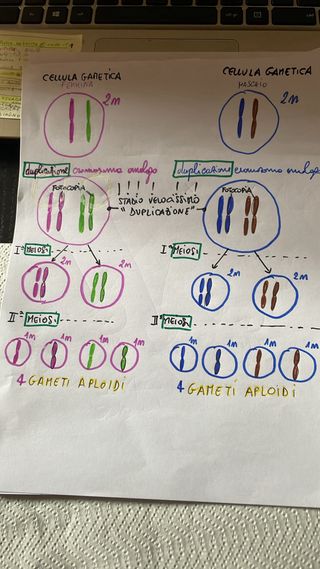 CELLULA GAMETICA
FEMMINA
2n
CELLULA GAMETICA
MASCHIO
2n
duplicazione cromosoma omologo
duplicazione cromosoma omologo
FOTOCOPIA
! ! ! ! ! ! !
STADIO VELOCISSIMO
"DUPLICAZIONE"
FOTOCOPIA
Iª MEIOSI
2n
2n
Iª MEIOSI
2n
2n
IIª MEIOSI
1n
1n
1n
1n
IIª MEIOSI
1n
1n
1n
1n
4 GAMETI APLOIDI
4 GAMETI APLOIDI